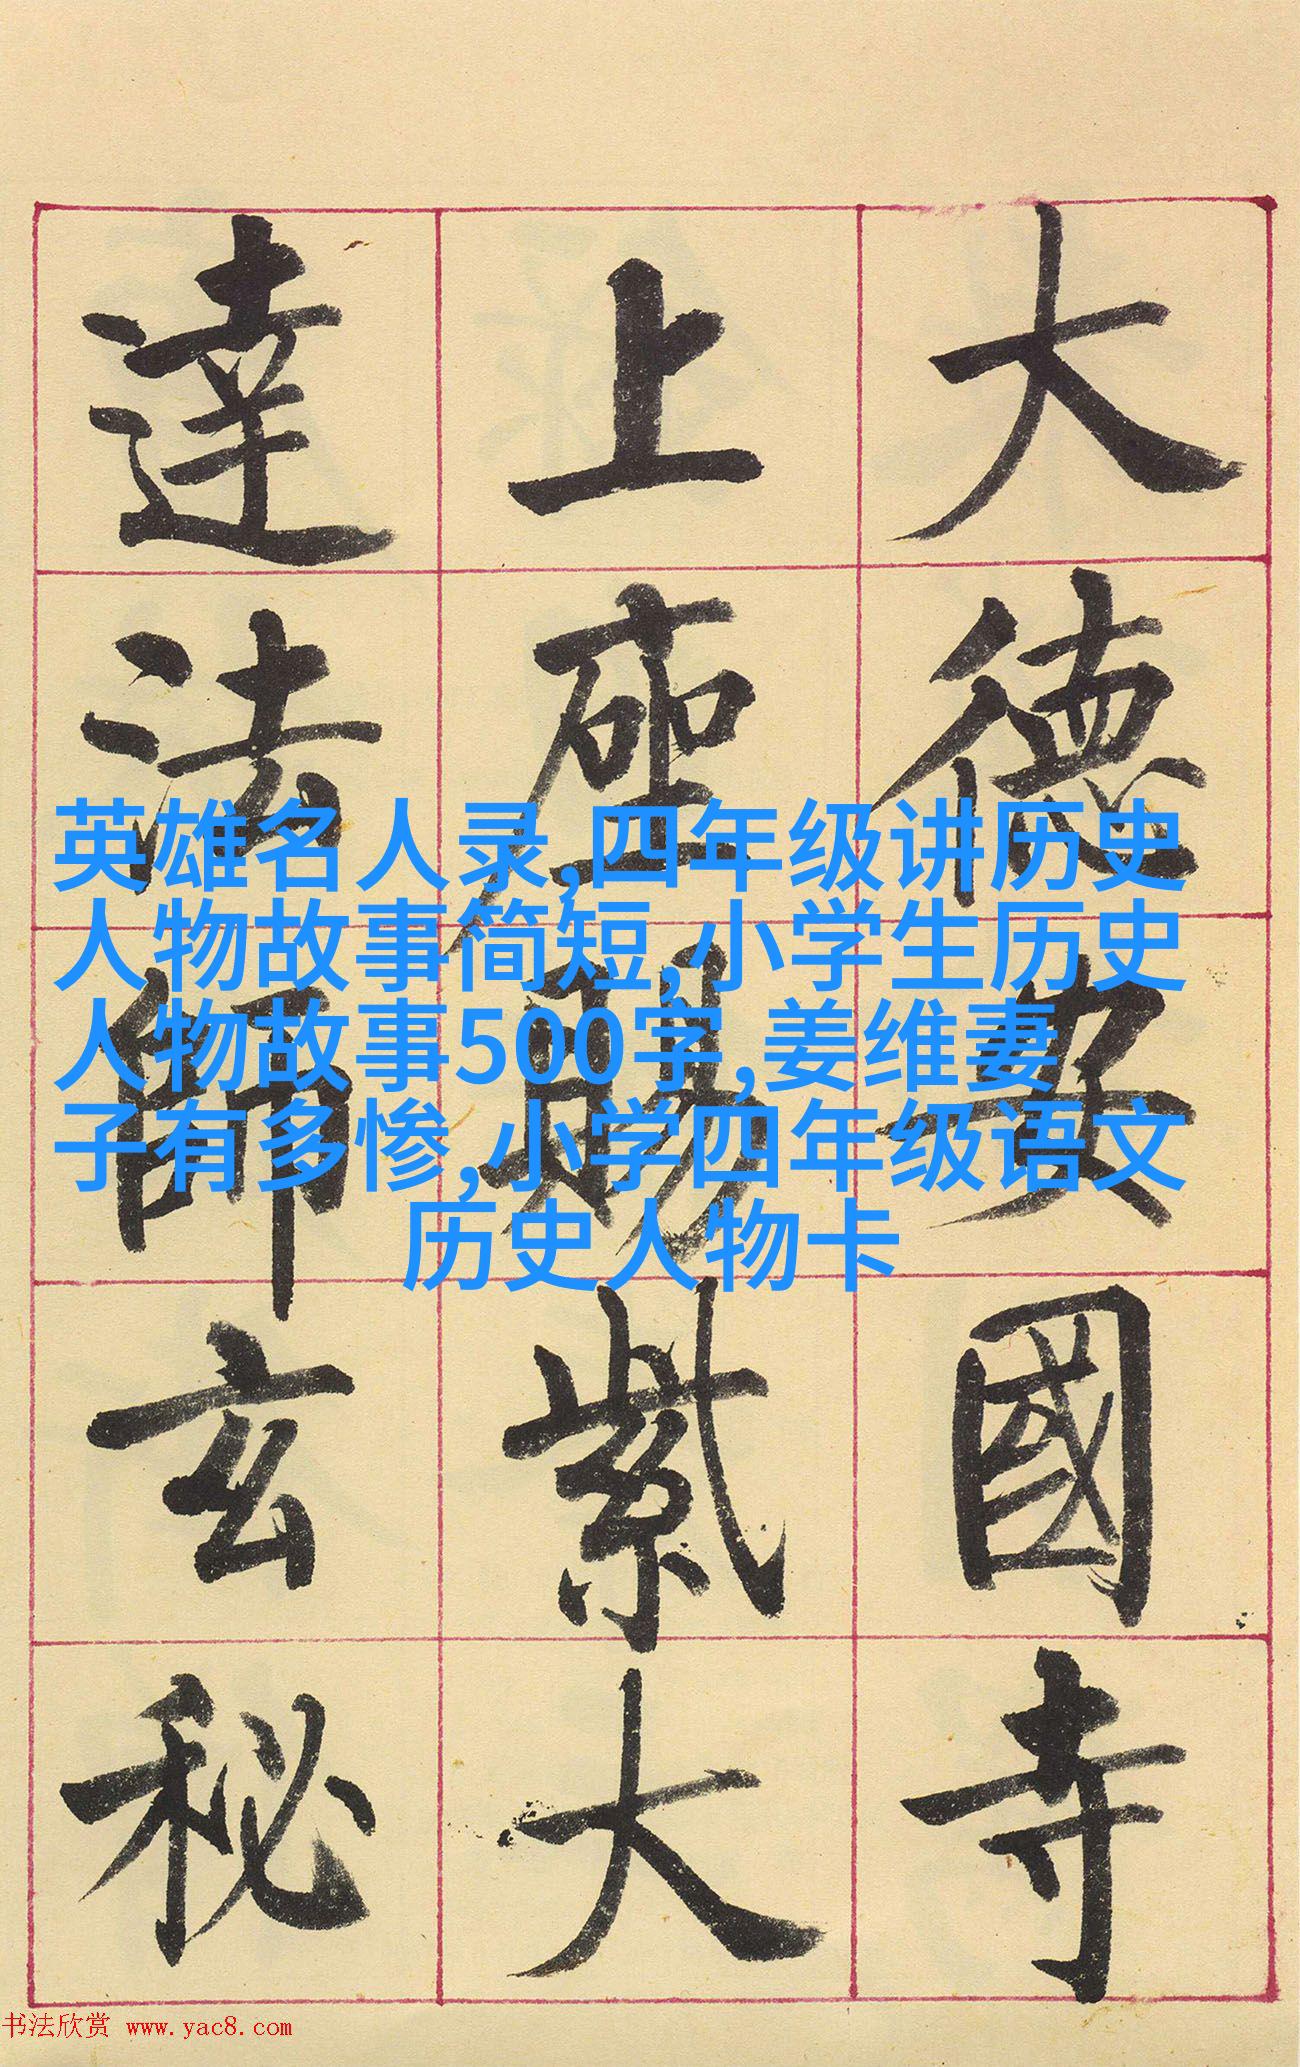 大德安國寺
上座賜紫大
達法師玄秘
英雄名人录,四年级讲历史
人物故事简短,小学生历史
人物故事500字,姜维妻
子有多惨,小学四年级语文
历史人物卡
书法欣赏 www.yac8.com